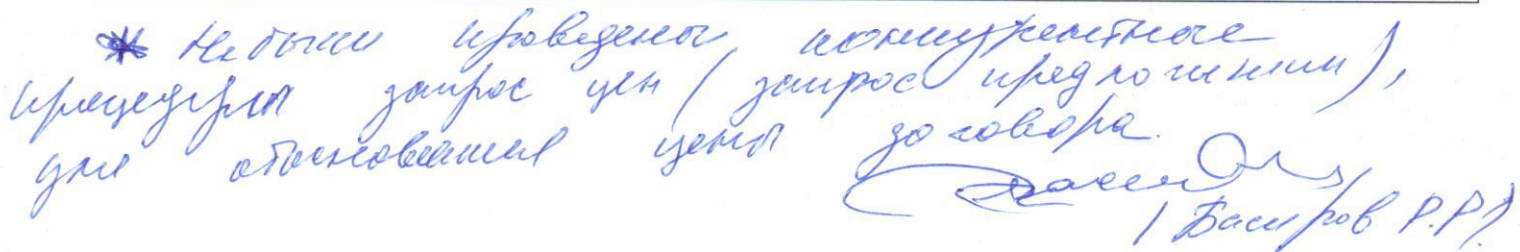 * Не были проведены конкурентные
процедуры запрос цен (запрос предложений),
для обоснования цены договора.
/ Басыров Р.Р./